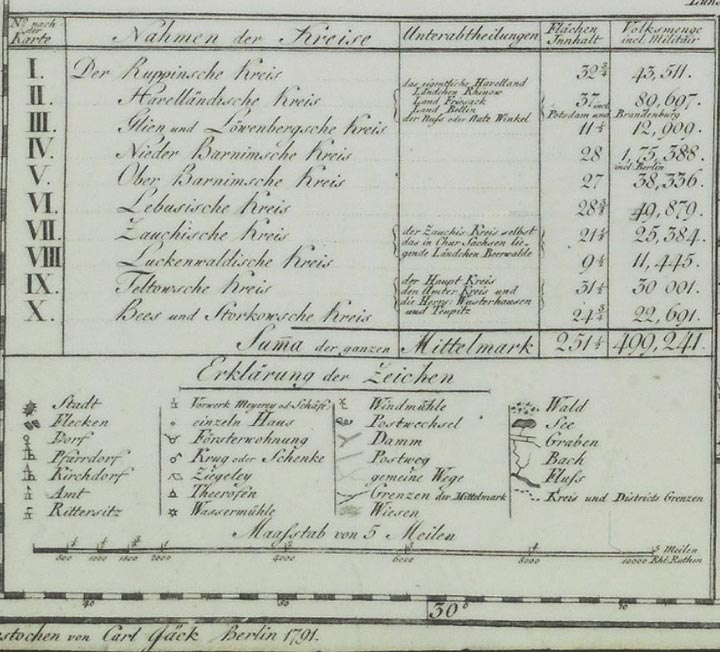 No nach der Karte Nahmen der Kreise Unterabtheilungen Flächen Innhalt Volksmenge incl. Militair
I. Der Ruppinsche Kreis 32¾ 43,511.
II. Havelländische Kreis das eigentliche Havelland Ländchen Rhinow Land Friesack Land Bellin der Nuss oder Natz Winkel 37 incl. Potsdam und Brandenburg 89,697.
III. Glien und Löwenbergsche Kreis 11¼ 12,909.
IV. Nieder Barnimsche Kreis 28 1,75,388. incl. Berlin
V. Ober Barnimsche Kreis 27 38,336.
VI. Lebusische Kreis 28¾ 49,879.
VII. Zauchische Kreis der Zauchis. Kreis selbst das in Chur Sachsen liegende Ländchen Beerwalde 21¼ 25,384.
VIII Luckenwaldische Kreis 9¼ 11,445.
IX. Teltowsche Kreis der Haupt Kreis den Amter Kreis und die Herrs: Wusterhausen und Teupitz 31¼ 30 001.
X. Bees und Storkowsche Kreis 24¾ 22,691.
Sum̄a der ganzen Mittelmark 251¼ 499,241.
Erklärung der Zeichen
Stadt Vorwerk Meyerey od. Schäf: Windmühle Wald
Flecken einzeln Haus Postwechsel See
Dorf Försterwohnung Damm Graben
Pfarrdorf Krug oder Schenke Postweg Bach
Kirchdorf Ziegeley gemeine Wege Fluss
Amt Theerofen Grenzen der Mittelmark Kreis und Districts Grenzen
Rittersitz Wassermühle Wiesen
Maasstab von 5 Meilen
5 Meilen
500 1000 1500 2000 4000 6000 8000 10000 Rhl. Ruthen
40 50 30° 10
stochen von Carl Jäck Berlin 1791.